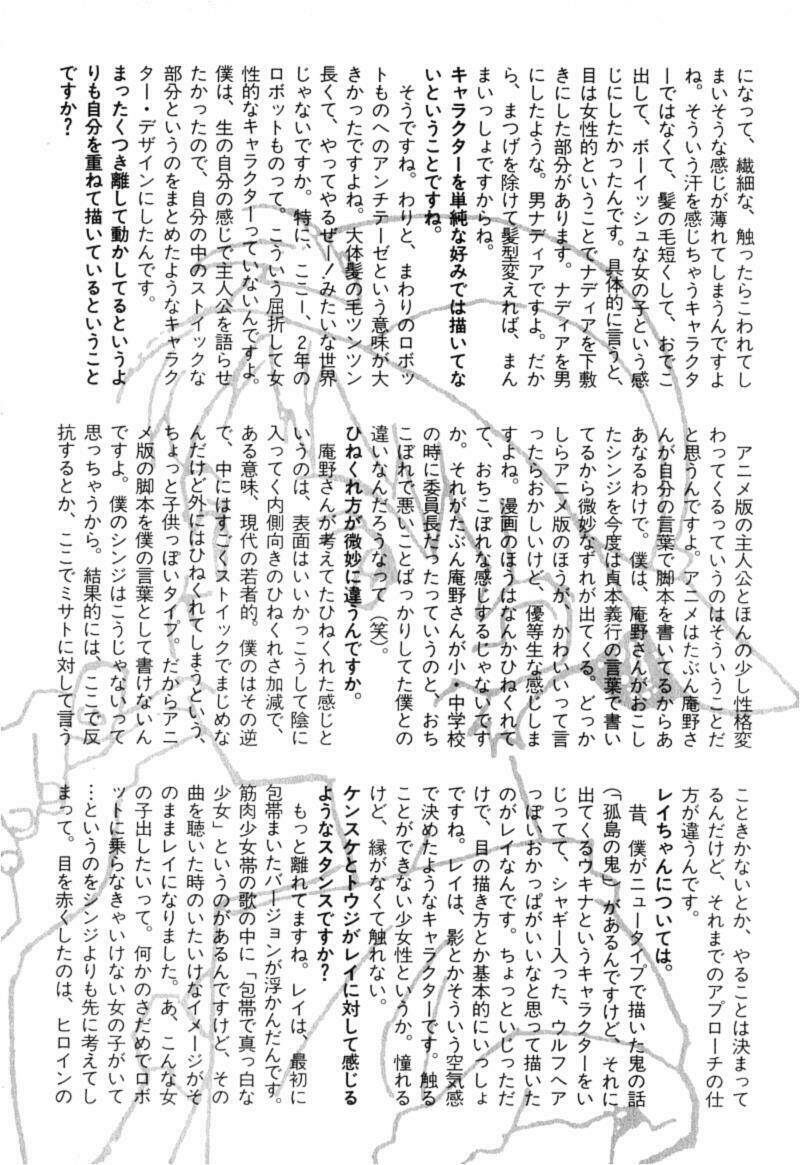 になって、繊細な、触ったらこわれてし
まいそうな感じが薄れてしまうんですよ
ね。そういう汗を感じちゃうキャラクタ
ーではなくて、髪の毛短くして、おでこ
出して、ボーイッシュな女の子という感
じにしたかったんです。具体的に言うと、
目は女性的ということでナディアを下敷
きにした部分があります。ナディアを男
にしたような。男ナディアですよ。だか
ら、まつげを除けて髪型変えれば、まん
まいっしょですからね。
キャラクターを単純な好みでは描いてな
いということですね。
そうですね。わりと、まわりのロボッ
トものへのアンチテーゼという意味が大
きかったですよね。大体髪の毛ツンツン
長くて、やってやるぜー！みたいな世界
じゃないですか。特に、ここー、2年の
ロボットものって。こういう屈折して女
性的なキャラクターっていないんですよ。
僕は、生の自分の感じで主人公を語らせ
たかったので、自分の中のストイックな
部分というのをまとめたようなキャラク
ター・デザインにしたんです。
まったくつき離して動かしてるというよ
りも自分を重ねて描いているということ
ですか？
アニメ版の主人公とほんの少し性格変
わってくるっていうのはそういうことだ
と思うんですよ。アニメはたぶん庵野さ
んが自分の言葉で脚本を書いてるからあ
あなるわけで。僕は、庵野さんがおこし
たシンジを今度は貞本義行の言葉で書い
てるから微妙なずれが出てくる。どっか
しらアニメ版のほうが、かわいいって言
ったらおかしいけど、優等生な感じしま
すよね。漫画のほうはなんかひねくれて
て、おちこぼれな感じするじゃないです
か。それがたぶん庵野さんが小・中学校
の時に委員長だったっていうのと、おち
こぼれで悪いことばっかりしてた僕との
違いなんだろうなって（笑）。
ひねくれ方が微妙に違うんですか。
庵野さんが考えてたひねくれた感じと
いうのは、表面はいいかっこうして陰に
入ってく内側向きのひねくれさ加減で、
ある意味、現代の若者的。僕のはその逆
で、中にはすごくストイックでまじめな
んだけど外にはひねくれてしまうという、
ちょっと子供っぽいタイプ。だからアニ
メ版の脚本を僕の言葉として書けないん
ですよ。僕のシンジはこうじゃないって
思っちゃうから。結果的には、ここで反
抗するとか、ここでミサトに対して言う
こときかないとか、やることは決まって
るんだけど、それまでのアプローチの仕
方が違うんです。
レイちゃんについては。
昔、僕がニュータイプで描いた鬼の話
（「孤島の鬼」）があるんですけど、それに
出てくるウキナというキャラクターをい
じってて、シャギー入った、ウルフヘア
っぽいおかっぱがいいなと思って描いた
のがレイなんです。ちょっといじっただ
けで、目の描き方とか基本的にいっしょ
ですね。レイは、影とかそういう空気感
で決めたようなキャラクターです。触る
ことができない少女性というか。憧れる
けど、縁がなくて触れない。
ケンスケとトウジがレイに対して感じる
ようなスタンスですか？
もっと離れてますね。レイは、最初に
包帯まいたバージョンが浮かんだんです。
筋肉少女帯の歌の中に「包帯で真っ白な
少女」というのがあるんですけど、その
曲を聴いた時のいたいけなイメージがそ
のままレイになりました。あ、こんな女
の子出したいって。何かのさだめでロボ
ットに乗らなきゃいけない女の子がいて
…というのをシンジよりも先に考えてし
まって。目を赤くしたのは、ヒロインの